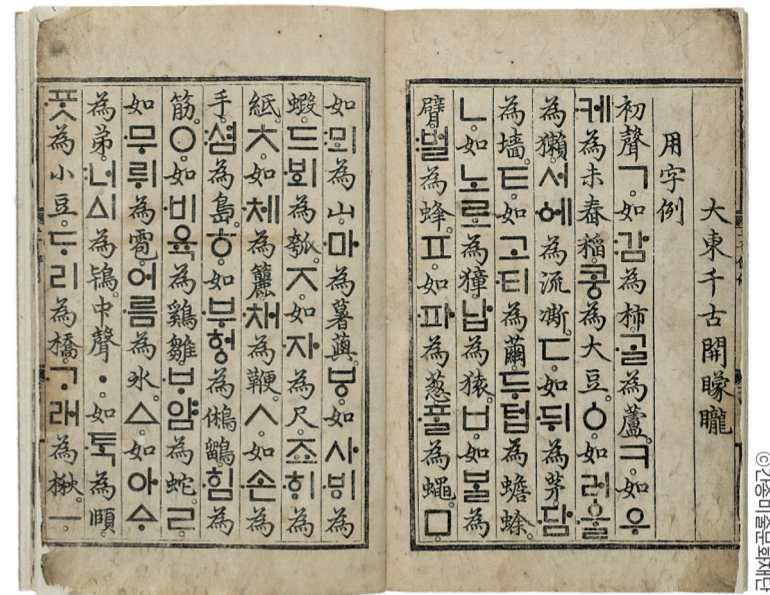 大東千古開矇矓
用字例
初聲ㄱ。如감為柿。ᄀᆞᆯ為蘆。ㅋ。如우
케為未舂稻。코ᇰ為大豆。ㆁ。如러ᅌᅮᆯ
為獺。서ᅌᅦ為流凘。ㄷ。如뒤為茅。담
為墻。ㅌ。如고티為繭。두텁為蟾蜍。
ㄴ。如노로為獐。납為猿。ㅂ。如ᄇᆞᆯ為
臂。벌為蜂。ㅍ。如파為葱。ᄑᆞᆯ為蠅。ㅁ。
如뫼為山。마為薯藇。ㅸ。如사ᄫᅵ為
蝦。드ᄫᅴ為瓠。ㅈ。如자為尺。죠ᄒᆡ為
紙。ㅊ。如체為籭。채為鞭。ㅅ。如손為
手。셤為島。ㅎ。如부허ᇰ為鵂鶹。힘為
筋。ㅇ。如비육為鷄雛。ᄇᆞ얌為蛇。ㄹ。
如무뤼為雹。어름為氷。ㅿ。如아ᅀᆞ
為弟。너ᅀᅵ為鴇。中聲ㆍ。如ᄐᆞᆨ為頤
ᄑᆞᆺ為小豆。ᄃᆞ리為橋。ᄀᆞ래為楸。ㅡ。
©간송미술문화재단